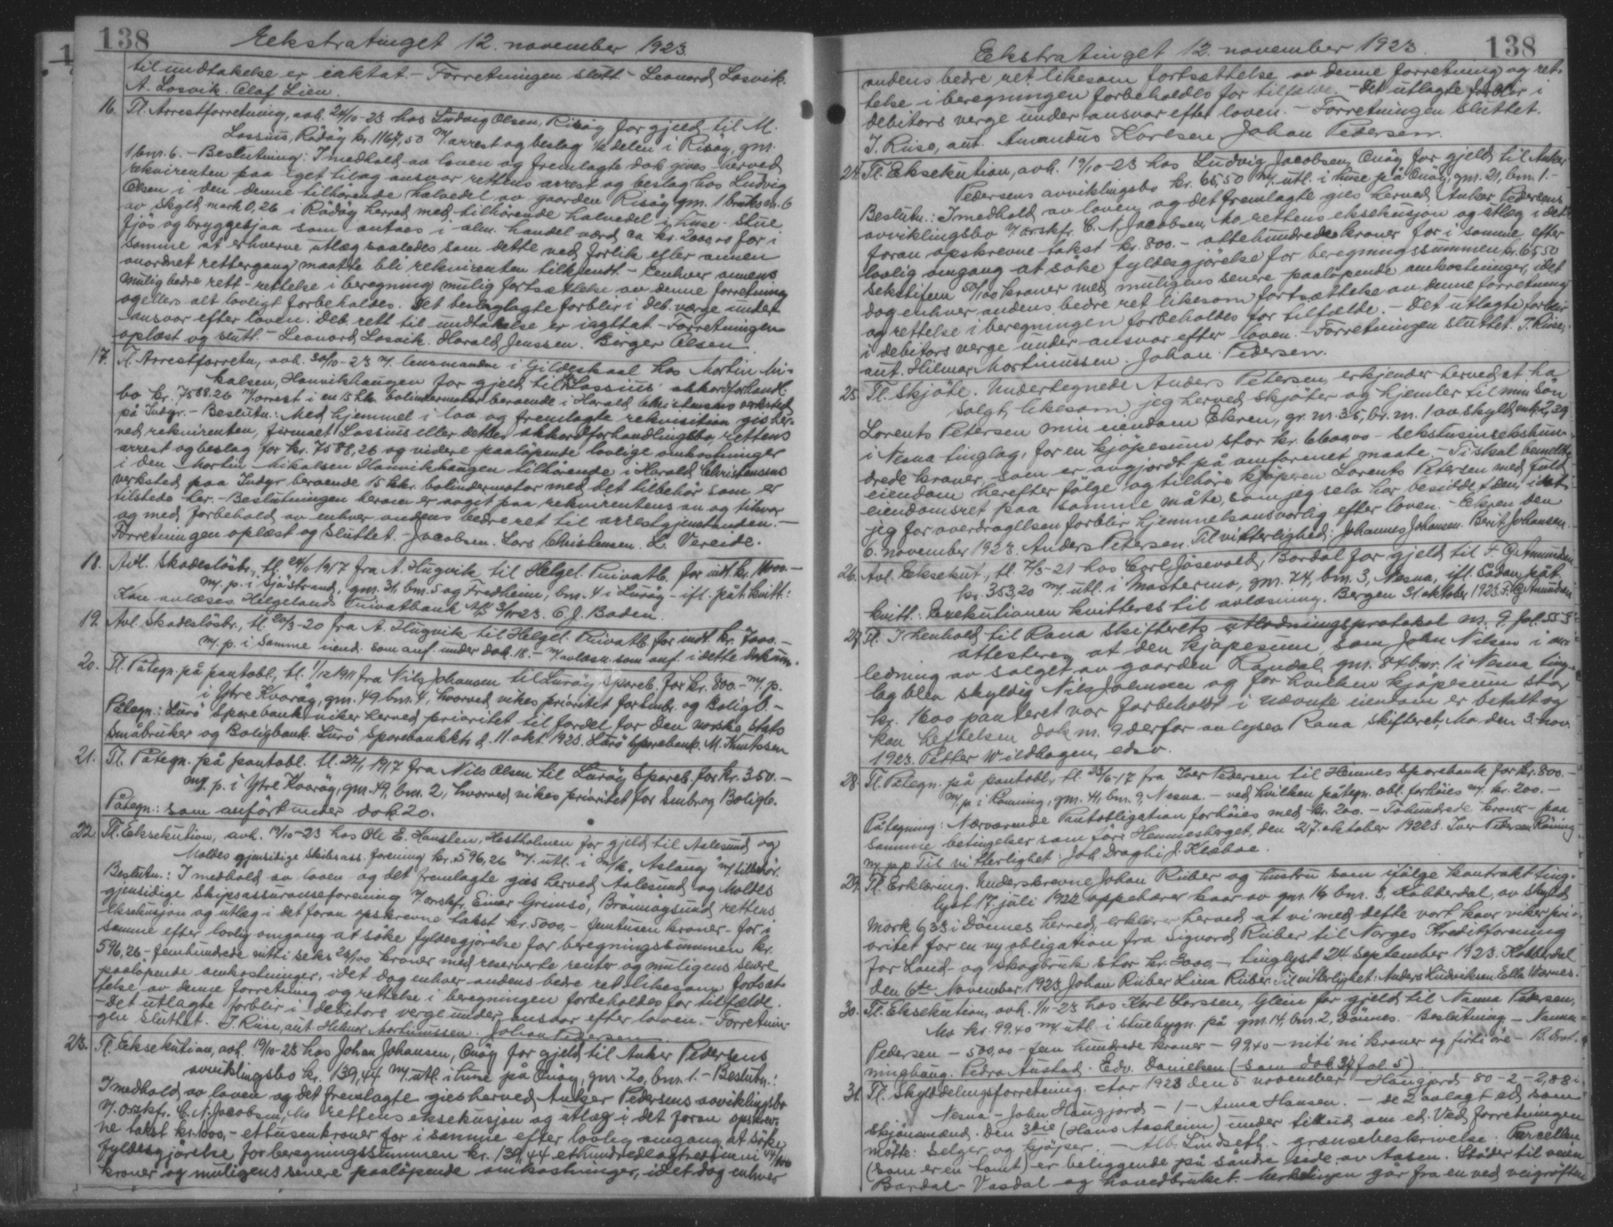 138 Eekstratinget 12. november 1923
til undtakelse er iaktat - Forretningen slutt - Leonard Losvik.
A. Losvik. Olaf Lien.
16. Tl. Arrestforretning, avh. 24/10-23 hos Ludvig Olsen, Risøy for gjeld til M.
Lossius, Rødøy kr. 1167,50 m/ arrest og beslag 1/2 delen i Risøy, gnr.
1 bnr. 6. - Beslutning: I medhold av loven og fremlagte dok. gives herved
rekvirenten paa eget tilog ansvar rettens arrest og beslag hos Ludvig
Olsen i den denne tilhörende halvedel av gaarden Risøy gnr. 1 bruksnr. 6
av skyld mark 0,26 i Rödöy herred med tilhörende halvedel i huse stue
fjös og bryggesjaa som antaes i alm. handel værd ca kr. 2000,00 for i
samme at erhverve utlæg saaledes som dette ved forlik eller annen
anordnet rettergang maatte bli rekvirenten tilkjendt - Eenhver annens
mulig bedre rett - rettelse i beregning mulig fortsættelse av denne forretning
og ellers alt lovligt forbeholdes. Det beslaglagte forblir i deb. verge under
ansvar efter loven. Deb. rett til undtakelse er iagttat - Forretningen
oplæst og slutt. - Leonard Losvik. Harald Jenssen. Birger Olsen.
17. Tl. Arrestforretn., avh. 30/10-23 av lensmanden i Gildeskaal hos Martin Mi-
kalsen, Hamnvikhaugen for gjeld til Lossius' akkordforhandl.
bo kr. 7588.26 m/ arrest i en 15 hk. bolindermotor beroende i Harald Christensens verksted
på Indyr. - Beslutn.: Med hjemmel i lov og fremlagte rekvisition gis her-
ved rekvirenten, firmaet Lossius eller dettes akkordforhandlingsbo, rettens
arrest og beslag for kr. 7588,26 og videre paalöpende lovlige omkostninger
i den Martin Mikalsen Hamnvikhaugen tilhörende i Harald Christensens
verksted paa Indyr beroende 15 hkr. bolindermotor med det tilbehör som er
tilstede her. - Beslutningen herom er avgit paa rekvirentens an og tilsvar
og med forbehold av enhver andens bedre ret til arrestgjenstanden. -
Forretningen oplæst og sluttet. - Jacobsen. Lars Christensen. L. Vereide.
18. Avl. Skadeslöstr., tl. 1917 fra A. Hugvik til Helgel. Privatb. for indt. kr. 14000. -
m. p. i Sjöstrand, gnr. 31, bnr. 5 og Fredheim, bnr. 4 i Luröy - ifl. påt. kvitt.:
Kan avlæses Helgelands Privatbank A/S 3/11 23. C J. Baden.
19. Avl. Skadeslöstr., tl. 20/3-20 fra A. Hugvik til Helgel. Privatb. for indt. kr. 7000. -
m. p. i samme eiend. som anf. under dok. 18. - m/ avlæsn. som anf. i dette dokum.
20. Tl. Påtegn. på pantobl., tl. 1/12 1911 fra Nils Johansen til Luröy Spareb. for kr. 800. - m. p.
i Ytre Kvaröy, gnr. 49 bnr. 4, hvorved vikes prioritet for Småb. og Boligb. -
Påtegn.: Lurö Sparebank viker herved prioritet til fordel for Den norske Stats
Småbruker og Boligbank. Lurö Sparebankktr. d. 11 okt. 1923. Lurö Sparebank. M. Knutssen
21. Tl. Påtegn. på pantobl. tl. 1917 fra Nils Olsen til Luröy Spareb. for kr. 350. -
m. p. i Ytre Kvaröy, gnr. 49, bnr. 2, hvorved vikes prioritet for Småbr. og Boligb.
Påtegn.: som anfört under dok. 20.
22. Tl. Eksekution, avh. 19/10-23 hos Ole E. Hansen, Hestholmen for gjeld til Aalesund og
Moldes gjensidige skibsass. forening kr. 596,26 m/ utl. i m/k. "Aslaug" m/ tilbehör.
Beslutn.: I medhold av loven og det fremlagte gies herved Aalesund og Moldes
gjensidige Skipsassuranseforening v/ orskfr. Einar Gremsö, Brönnöysund rettens
eksekusjon og utlæg i det foran opskrevne takst kr. 5000, - femtusen kroner - for i
samme efter lovlig omgang at söke fyldesgjörelse for beregningssummen kr.
596,26 - femhundrede nitti seks 26/100 kroner med reserverte renter og muligens senere
paalöpende omkostninger, idet dog enhver andens bedre ret likesom fortsæt-
telse av denne forretning og rettelse i beregningen forbeholdes for tilfælde.
- Det utlagte forblir i debitors verge under ansvar efter loven. - Forretnin-
gen sluttet. J. Riise, aut. Hilmar Mortinussen. Johan Pedersen.
23. Tl. Eksekution, avh. 19/10-23 hos Johan Johansen, Onöy for gjeld til Anker Pedersens
avviklingsbo kr. 139,44 m/ utl. i huse på Onöy, gnr. 20, bnr. 1. - Beslutn.:
I medhold av loven og det fremlagte gies herved Anker Pedersens avviklingsbo
v/ orskfr. C. A. Jacobsen, Mo rettens eksekusjon og utlæg i det foran opskrev-
ne takst kr. 1000, - ettusen kroner for i samme efter lovlig omgang at söke
fyldesgjörelse for beregningssummen kr. 139,44 ethundredeogtrettini 44/100
kroner og muligens senere paalöpende omkostninger, idet dog enhver
Ekstratinget 12. november 1923. 138
andens bedre ret likesom fortsættelse av denne forretning og ret-
telse i beregningen forbeholdes for tilfælde. - Det utlagte forblir i
debitors verge under ansvar efter loven. - Forretningen sluttet.
J. Riise, aut. Amandus Karlsen. Johan Pedersen.
24. Tl. Eksekution, avh. 19/10-23 hos Ludvig Jacobsen, Onöy for gjeld til Anker
Pedersens avviklingsbo kr. 65,50 m/ utl. i huse på Onöy, gnr. 21, bnr. 1. -
Beslutn.: I medhold av loven og det fremlagte gies herved Anker Pedersens
avviklingsbo v/ orskfr. C. A. Jacobsen, Mo rettens eksekusjon og utlæg i det
foran opskrevne takst kr. 800. - ottehundrede kroner for i samme efter
lovlig omgang at söke fyldesgjörelse for beregningssummen kr. 65,50
sekstifem 50/100 kroner med muligens senere paalöpende omkostninger, idet
dog enhver andens bedre ret likesom fortsættelse av denne forretning
og rettelse i beregningen forbeholdes for tilfælde. - Det utlagte forblir
i debitors verge under ansvar efter loven. - Forretningen sluttet. J. Riise,
aut. Hilmar Mortinussen. Johan Pedersen.
25. Tl. Skjöte. Undertegnede Anders Petersen erkjender herved at ha
solgt, likesom jeg herved skjöter og hjemler til min sön
Lorents Petersen min eiendom Ekren, gr. nr. 35, br. nr. 1 av skyld mk. 2,29
i Nesna tinglag, for en kjöpesum stor kr. 6600,00 - sekstusinsekshun-
drede kroner, som er avgjordt på omforenet maate. - Ti skal bemeldte
eiendom herefter fölge og tilhöre kjöperen Lorents Petersen med fuld
eiendomsret paa samme måte, som jeg selv har besiddet den, idet
jeg for overdragelsen forblir hjemmelsansvarlig efter loven. - Ekren den
6. november 1923. Anders Petersen. Til vitterlighed: Johannes Johansen. Berit Johansen.
26. Avl. Eksekut., tl. 7/3-21 hos Carl Jösevold, Bardal for gjeld til F. G. Amundsen
kr. 353,20 m/ utl. i Mastermo, gnr. 74, bnr. 3, Nesna, ifl. sådan påt.
kvitt.: Exekutionen kvitteres til avlæsning. Bergen 31 oktober 1923. F. G. Amundsen
27. Tl. I henhold til Rana skifterets utlodningsprotokol nr. 9 fol. 55
attesteres at den kjöpesum, som John Nilsen i an-
ledning av salget av gaarden Randal gnr. 84 bnr. 1 i Nesna ting-
lag blev skyldig Nils Johnsen og for hvilken kjöpesum stor
kr. 1600 panteret var forbeholdt i nævnte eiendom er betalt og
kan heftelsen dok nr. 9 derfor avlyses. Rana skifteret, Mo den 3. nov.
1923. Petter Wildhagen, edsv.
28. Tl. Påtegn. på pantobl., tl. 1917 fra Iver Pedersen til Hemnes Sparebank for kr. 800. -
m. p. i Röming, gnr. 41, bnr. 9, Nesna - ved hvilken påtegn. obl. forhöies m/ kr. 200. -
Påtegning: Nærværende Pantobligation forhöies med kr. 200. - Tohundrede kroner - paa
samme betingelser som för. Hemnesberget, den 27. oktober 1923. Iver Pedersen Röming
m. p. p. Til vitterlighet: Joh. Draghi. J. Klæboe.
29. Tl. Erklæring. Underskrevne Johan Ruber og hustru som ifölge kontrakt ting-
lyst 17. juli 1922 oppebærer kaar av gnr. 16 bnr. 3, Kobberdal, av skyld
mark 6,33 i Dönnes herred, erklærer herved at vi med dette vort kaar viker pri-
oritet for en ny obligation fra Signard Ruber til Norges Kreditforening
for Land- og Skogbruk stor kr. 3000,- tinglyst 24 september 1923. Kobberdal
den 6te November 1923. Johan Ruber. Lina Ruber. Til vitterlighet: Anders Hudriksen. Ella Warnes.
30. Tl. Eksekution, avh. 1/11-23 hos Karl Larssen, Glein for gjeld til Nanna Pedersen,
Mo kr. 99.40 m/ utl. i stuebygn. på gnr. 14, bnr. 2, Dönnes. - Beslutning - Nanna
Pedersen - 500,00 - fem hundrede kroner - 99.40 - niti ni kroner og förti öre -
Pedra Austad. Edv. Danielsen (Som dok. 34 fol. 5).
31. Tl. Skylddelingsforretning. Aar 1923 den 5 november - Haugjord - 80 - 2 - 2,88 i
Nesna - John Haugjord - 1 - Anna Hansen. - de 2 avlagt ed som
skjönsmænd. Den 3die (Hans Aasheim) under tilbud om ed. Ved forretningen
mötte: Selger og kjöper. - Alb. Lindseth. - grænsebeskrivelse: Parcellen
(som er en tomt) er beliggende på söndre side av Aasen. Stöder til veien
Bardal - Vasdal og hovedbruket. Merkelinjen går fra en ved veigröften